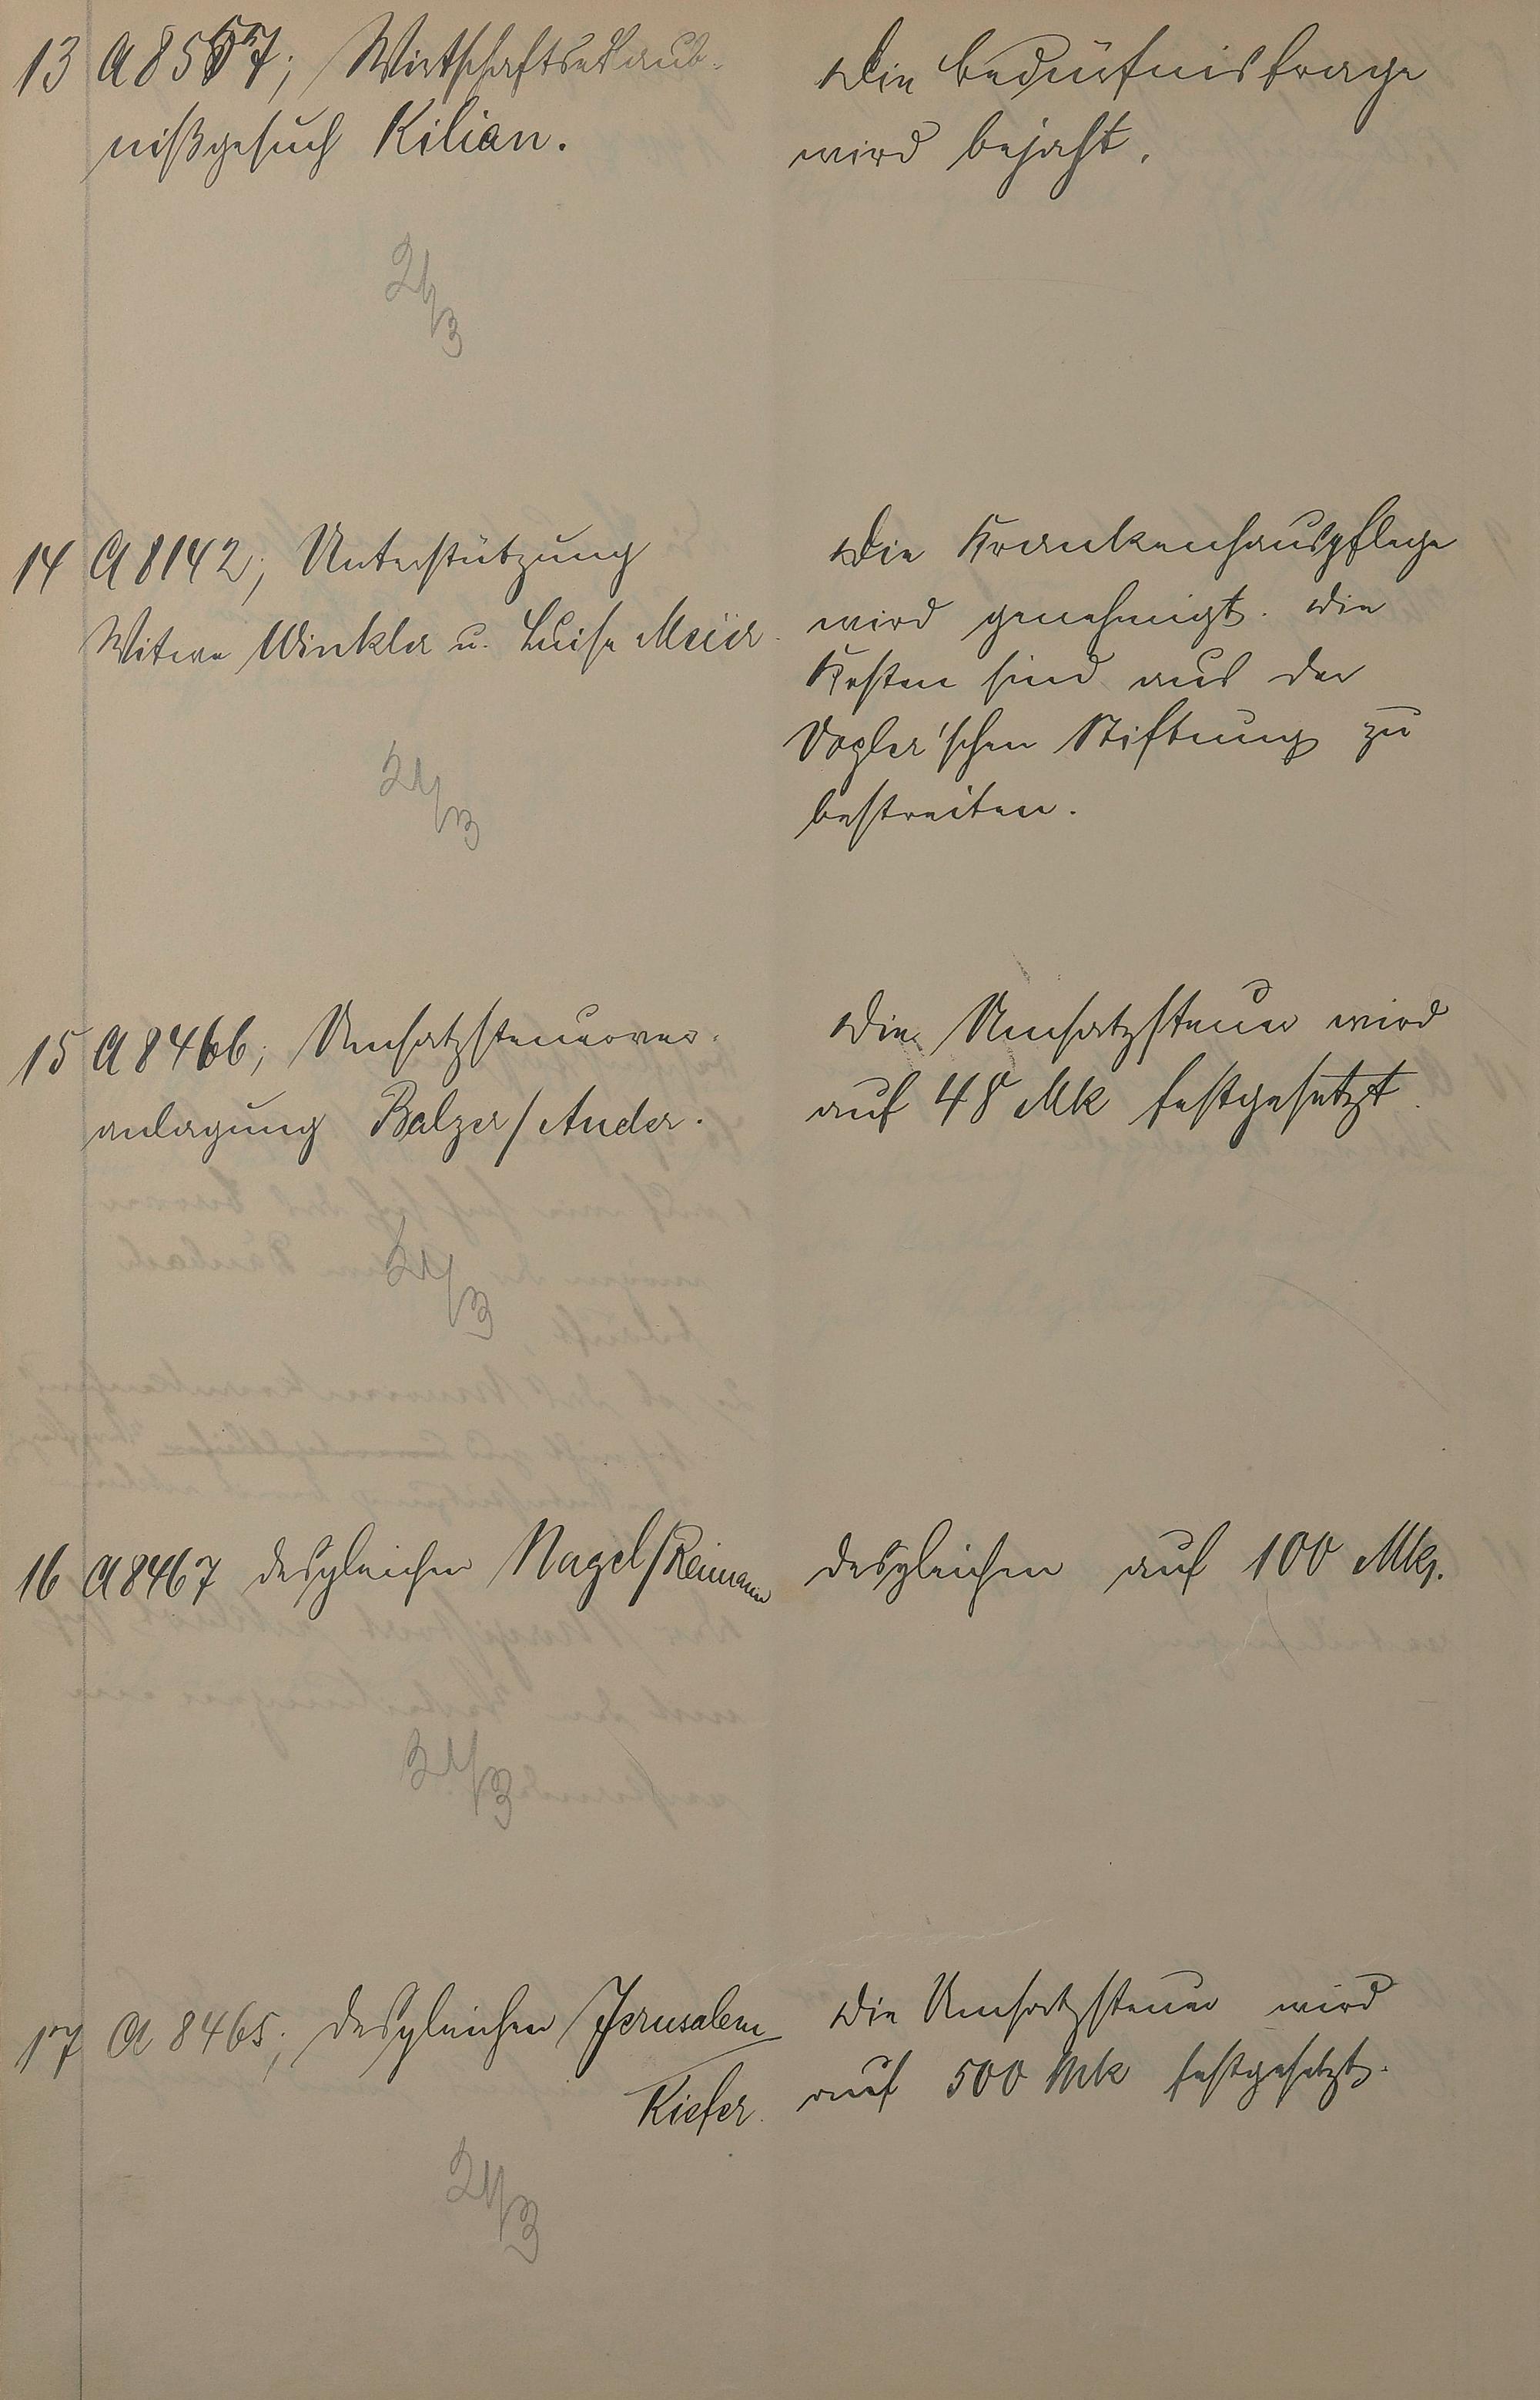 13 A 8557; Wirtschaftserlaub-
nißgesuch Kilian.
Die Bedürfnisfrage
wird bejaht.
21/3
14 A 8142; Unterstützung
Witwe Winkler u. Luise Meier.
Die Krankenhauspflege
wird genehmigt. Die
Kosten sind aus der
Vogler'schen Stiftung zu
bestreiten.
21/3
15 A 8466; Umsatzsteuerver-
anlagung Balzer/Ander.
Die Umsatzsteuer wird
auf 48 Mk festgesetzt.
21/3
16 A 8467 desgleichen Nagel/Reimann
desgleichen auf 100 Mk.
21/3
17 A 8465; desgleichen Jerusalem
Kiefer.
Die Umsatzsteuer wird
auf 500 Mk festgesetzt.
21/3